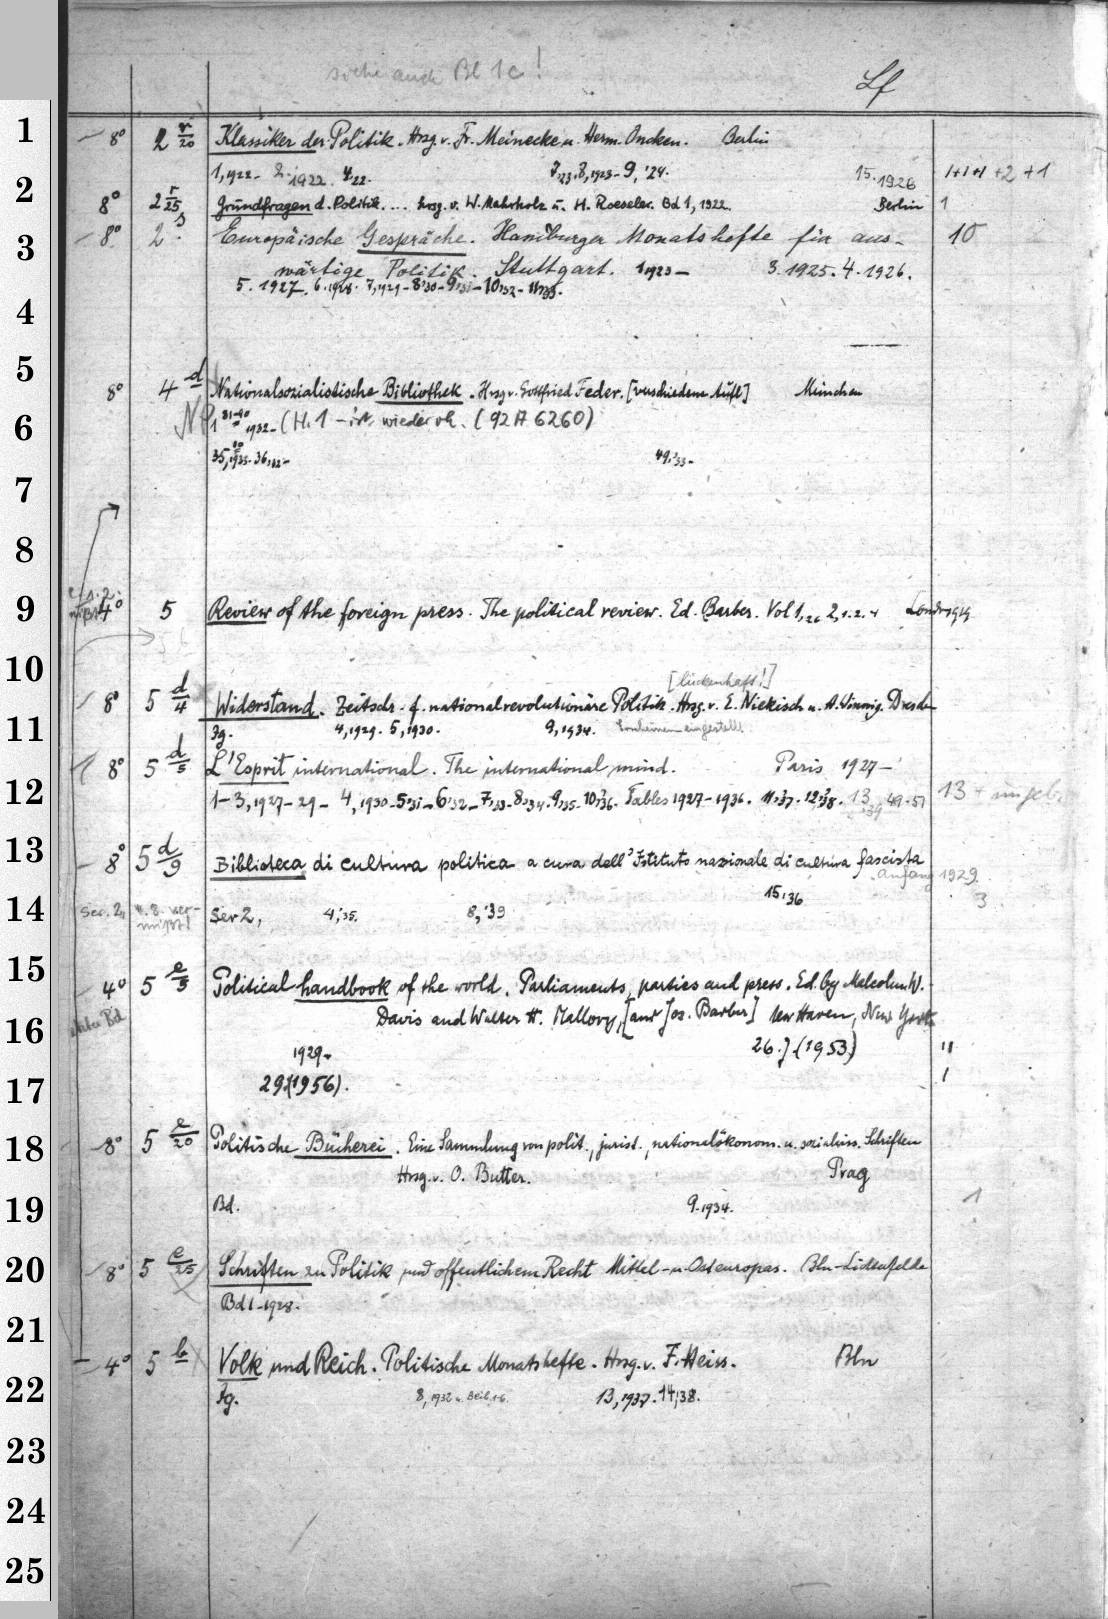 siehe auch Bl 1c!
Lf
1 8° 2 r/20 Klassiker der Politik. Hrsg. v. Fr. Meinecke u. Herm. Oncken. Berlin
1,1922- 2.1922. 4,22. 7,23. 8,1923- 9,'24. 15.1926 1+1+1+2+1
2 8° 2 r/25 Grundfragen d. Politik.... hrsg. v. W. Mahrholz u. H. Roeseler. Bd 1, 1922. Berlin 1
3 8° 2 s Europäische Gespräche. Hamburger Monatshefte für aus- 10
wärtige Politik. Stuttgart. 1,1923- 3.1925. 4.1926.
5.1927. 6.1928. 7,1929- 8,'30- 9,'31- 10,'32- 11,'33.
4
5 8° 4 d Nationalsozialistische Bibliothek. Hrsg. v. Gottfried Feder. [verschiedene Aufl.] München
6 1 31-40 1932- (H. 1 - ist wieder vh. (92 A 6260)
35,1933. 36,1932- 49,'33-
7
8
9 4° 5 Review of the foreign press. The political review. Ed. Barber. Vol 1, 2, 1. 2. 4 London 1919
10
[lückenhaft!]
11 8° 5 d/4 Widerstand. Zeitschr. f. nationalrevolutionäre Politik. Hrsg. v. E. Niekisch u. A. Winnig. Dresden
Jg. 4,1929. 5,1930. 9,1934. eingestellt
12 8° 5 d/5 L'Esprit international. The international mind. Paris 1927-
1-3,1927-29- 4,1930- 5,'31- 6,'32- 7,'33- 8,'34. 9,'35- 10,'36. Tables 1927-1936. 11,'37. 12,'38. 13,'39 49-51 13 + ungeb.
13 8° 5 d/9 Biblioteca di cultura politica a cura dell'Istituto nazionale di cultura fascista
Anfang 1929.
15,'36
14 Ser. 2, 8. ver- Ser 2, 4,'35. 8,'39 3
mißt!
15 4° 5 e/5 Political handbook of the world. Parliaments, parties and press. Ed. by Malcolm W.
16 Davis and Walter H. Mallory, [and Jos. Barber] New Haven, New York
1929- 26.J. (1953) 11
17 29.(1956). 1
18 8° 5 e/20 Politische Bücherei. Eine Sammlung von polit., jurist., nationalökonom. u. sozialwiss. Schriften
Hrsg. v. O. Butter. Prag
19 Bd. 9.1934. 1
20 8° 5 e/25 Schriften zu Politik und öffentlichem Recht Mittel- u. Osteuropas. Bln-Lichterfelde
21 Bd 1-1928.
22 4° 5 b Volk und Reich. Politische Monatshefte. Hrsg. v. F. Heiss. Bln
Jg. 8,1932 u. Beil. 1-6. 13,1937. 14,'38.
23
24
25